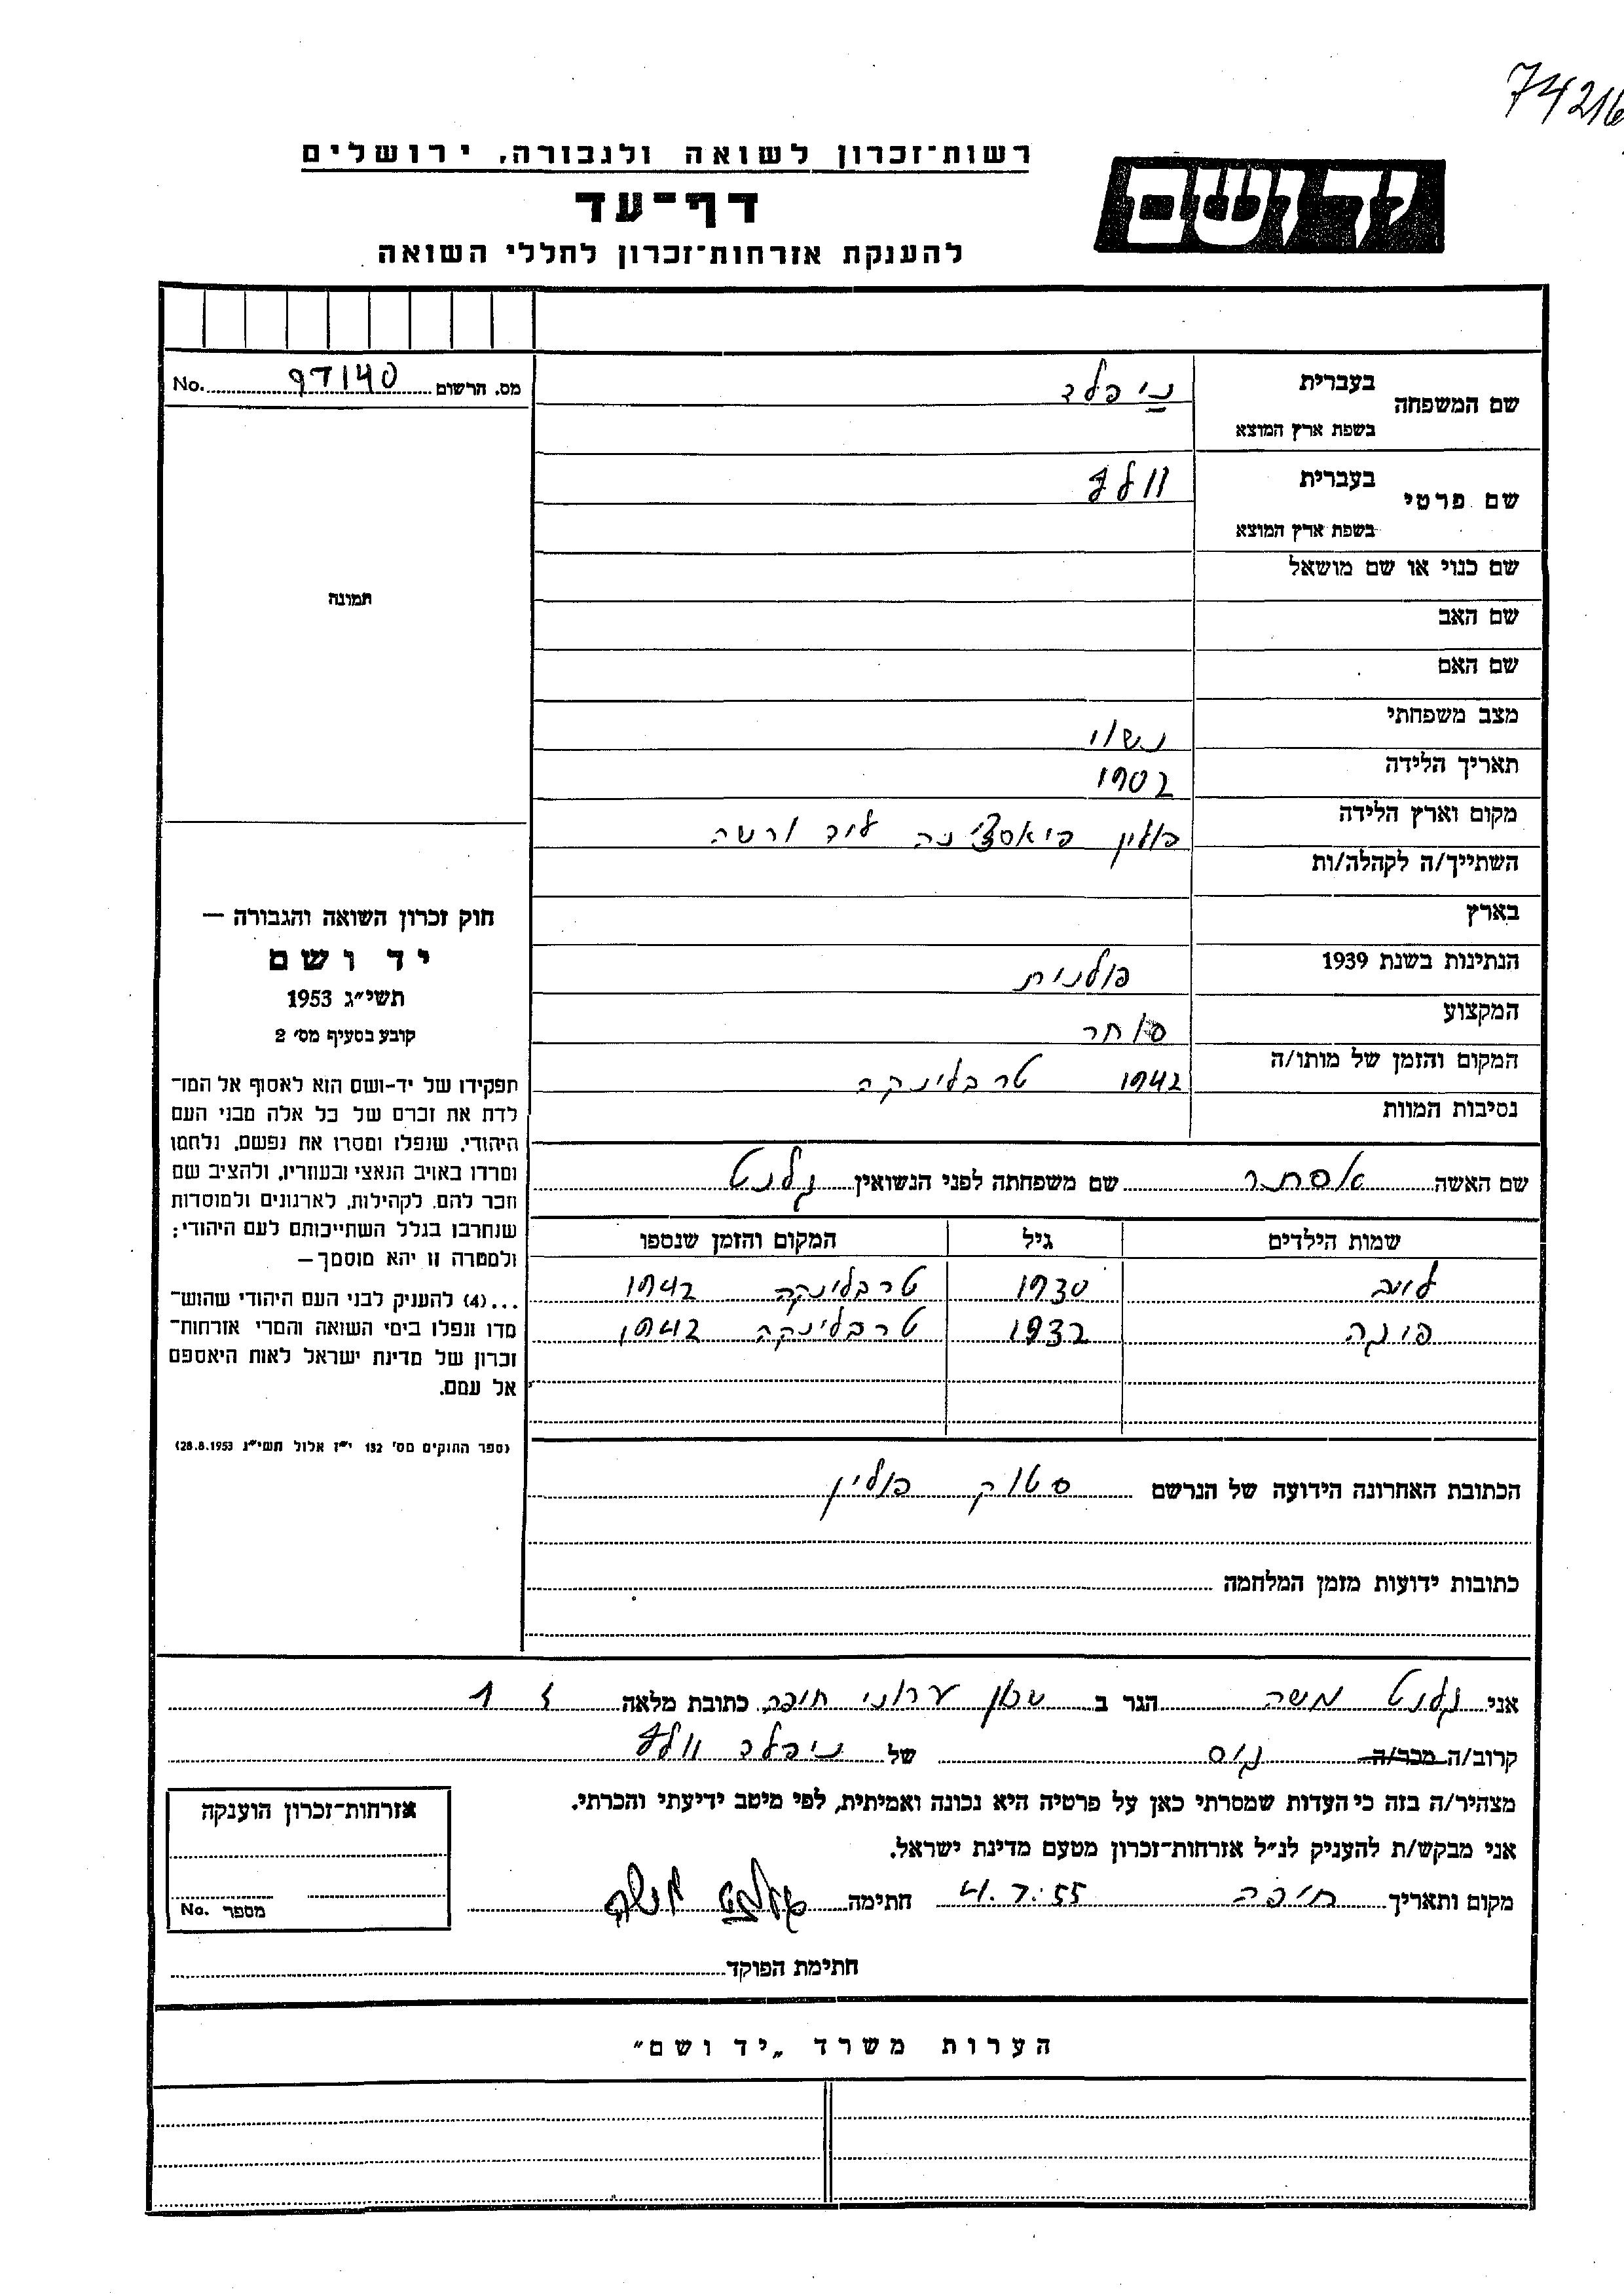 74216
רשות־זכרון לשואה ולגבורה, ירושלים
יד ושם
דף־עד
להענקת אזרחות־זכרון לחללי השואה
מס. הרשום 97140 No.
שם המשפחה
בעברית
ניפלד
בשפת ארץ המוצא
שם פרטי
בעברית
וולף
בשפת ארץ המוצא
שם כנוי או שם מושאל
תמונה
שם האב
שם האם
מצב משפחתי נשוי
תאריך הלידה 1902
מקום וארץ הלידה פולין פיאסצ'נה ליד ורשה
השתייך/ה לקהלה/ות
בארץ
הנתינות בשנת 1939 פולנית
המקצוע סוחר
המקום והזמן של מותו/ה 1942 טרבלינקה
נסיבות המוות
חוק זכרון השואה והגבורה —
יד ושם
תשי״ג 1953
קובע בסעיף מס׳ 2
תפקידו של יד-ושם הוא לאסוף אל המו־
לדת את זכרם של כל אלה מבני העם
היהודי, שנפלו ומסרו את נפשם, נלחמו
ומרדו באויב הנאצי ובעוזריו, ולהציב שם
וזכר להם, לקהילות, לארגונים ולמוסדות
שנחרבו בגלל השתייכותם לעם היהודי;
ולמטרה זו יהא מוסמך—
...(4) להעניק לבני העם היהודי שהוש־
מדו ונפלו בימי השואה והמרי אזרחות־
זכרון של מדינת ישראל לאות היאספם
אל עמם.
(ספר החוקים מס׳ 132 י״ז אלול תשי״ג 28.8.1953)
שם האשה אסתר שם משפחתה לפני הנשואין גלנט
שמות הילדים גיל המקום והזמן שנספו
לייב 1930 טרבלינקה 1942
פיגה 1932 טרבלינקה 1942
הכתובת האחרונה הידועה של הנרשם סטוק פולין
כתובות ידועות מזמן המלחמה
אני גלנט משה הגר ב שכון עירוני חיפה כתובת מלאה 1
קרוב/ה מכר/ה גיס של ניפלד וולף
מצהיר/ה בזה כי העדות שמסרתי כאן על פרטיה היא נכונה ואמיתית, לפי מיטב ידיעתי והכרתי.
אני מבקש/ת להעניק לנ״ל אזרחות־זכרון מטעם מדינת ישראל.
מקום ותאריך חיפה 4.7.55 חתימה גלנט משה
אזרחות־זכרון הוענקה
מספר No.
חתימת הפוקד
הערות משרד „יד ושם״